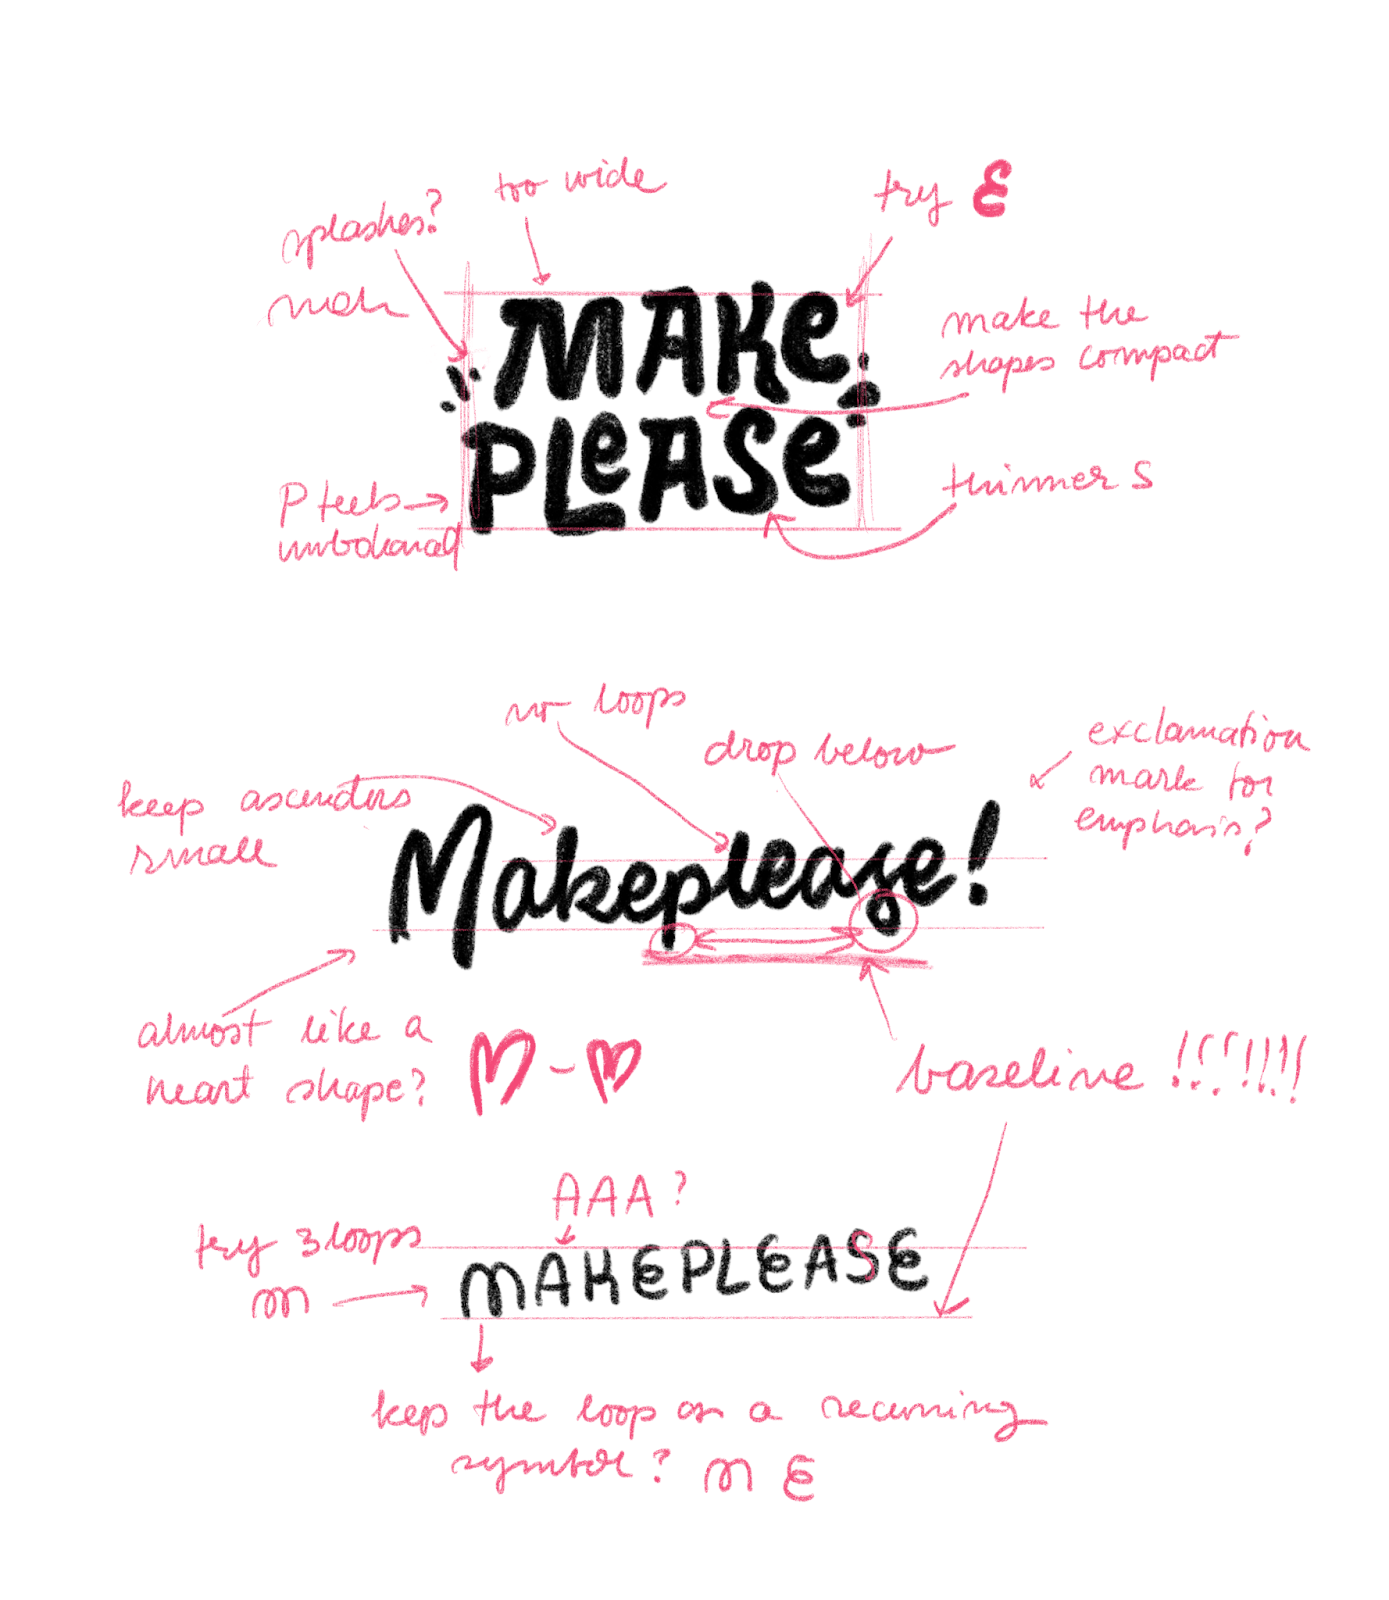 too wide
try E
splashes?
nah
MAKE
make the
shapes compact
PLEASE
thinner S
P feels
unbalanced
no loops
drop below
exclamation
mark for
emphasis?
keep ascenders
small
Makeplease!
almost like a
heart shape?
baseline !!!!!!!
AAA?
try 3 loops
m
MAKEPLEASE
kep the loop as a recurring
symbol? m E